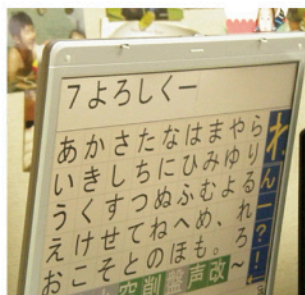 7よろしくー
あかさたなはまやらわ
いきしちにひみゆりん
うくすつぬふむよるー
えけせてねへめ、れ?
おこそとのほも。ろ!
空削盤声改~